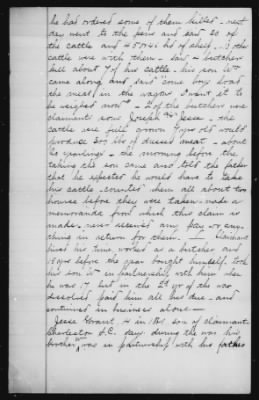 he had ordered some of them killed - next
day went to the pens and saw 20 of
the cattle and # 5741 hd of sheep other
cattle were with them - saw a butcher
kill about 7 of his cattle - his son W
came along and said "come boys load
the meat in the wagons I want it to
be weighed now" - 2 of the butchers were
claimants sons Joseph and Jesse - the
cattle were full grown 4 yrs old would
produce 300 lbs of dressed meat - about
yearlings - the morning before the
taking the son came and told the father
that he expected he would have to take
his cattle - counted them all about two
hours before they were taken - made a
memoranda from which this claim is
made - never received any pay or any-
thing in return for them. claimant
hired his time, worked as a butcher and
10 yrs before the war bought himself, took
his son W in partnership with him when
he was 17 but in the 2d yr of the war
dissolved paid him all his due - and
continued in business alone -
Jesse Grant, son of claimant
Charleston S.C. says: during the war his
brother was in partnership with his father